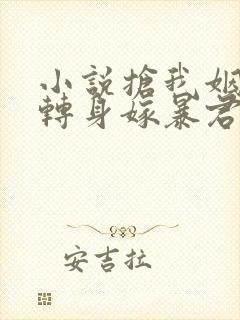 小說搶我姻
轉身嫁暴君
安吉拉